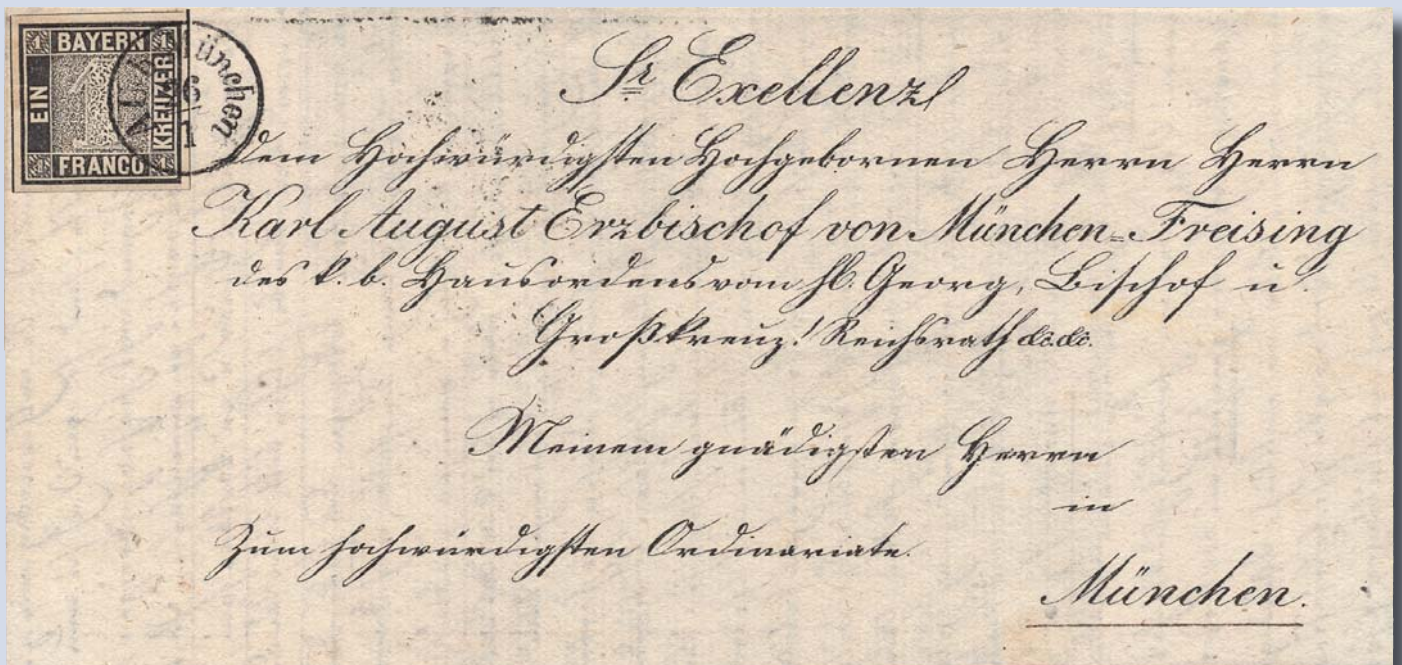 BAYERN
EIN
KREUZER
FRANCO
1
1
1
1
1
München
AU
26
1
Sr Exellenz
dem Hochwürdigsten Hochgebornen Herrn Herrn
Karl August Erzbischof von München-Freising
des k. b. Hausordens vom hl. Georg, Bischof u.
Großkreuz! Reichsrath &c.&c.
Meinem gnädigsten Herrn
in
Zum hochwürdigsten Ordinariate.
München.